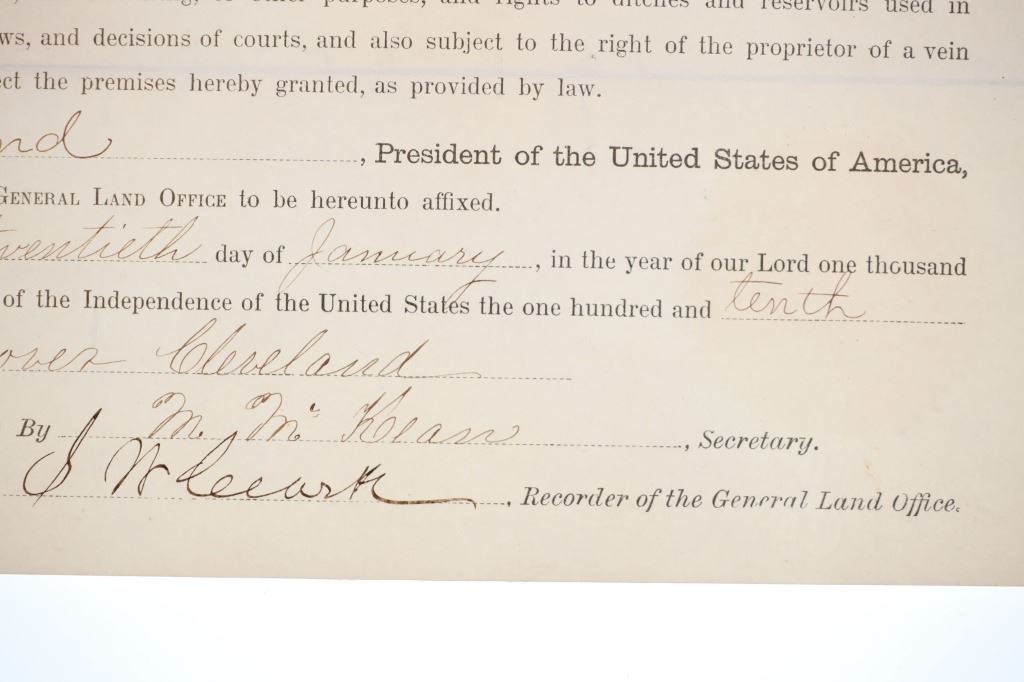 other purposes, and rights to ditches and reservoirs used in
ws, and decisions of courts, and also subject to the right of the proprietor of a vein
ct the premises hereby granted, as provided by law.
nd, President of the United States of America,
GENERAL LAND OFFICE to be hereunto affixed.
twentieth day of January, in the year of our Lord one thousand
of the Independence of the United States the one hundred and tenth
over Cleveland
By M. McKean, Secretary.
S W Clark, Recorder of the General Land Office.